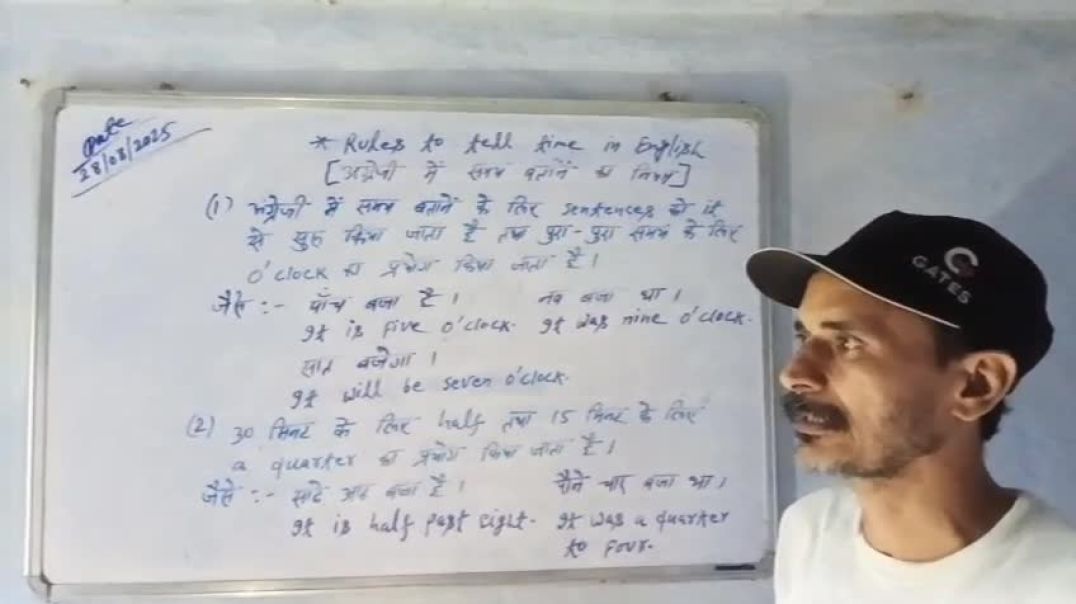 Date
28/08/2025
* Rules to tell time in English
[अंग्रेजी में समय बताने का नियम]
(1) अंग्रेजी में समय बताने के लिए sentences को it
से शुरू किया जाता है तथा पुरा-पुरा समय के लिए
O'clock का प्रयोग किया जाता है।
जैसे :- पाँच बजा है। नव बजा था।
It is five o'clock. It was nine o'clock.
सात बजेगा।
It will be seven o'clock.
(2) 30 मिनट के लिए half तथा 15 मिनट के लिए
a quarter का प्रयोग किया जाता है।
जैसे :- साढे आठ बजा है। पौने चार बजा था।
It is half past eight. It was a quarter
to four.
GATES